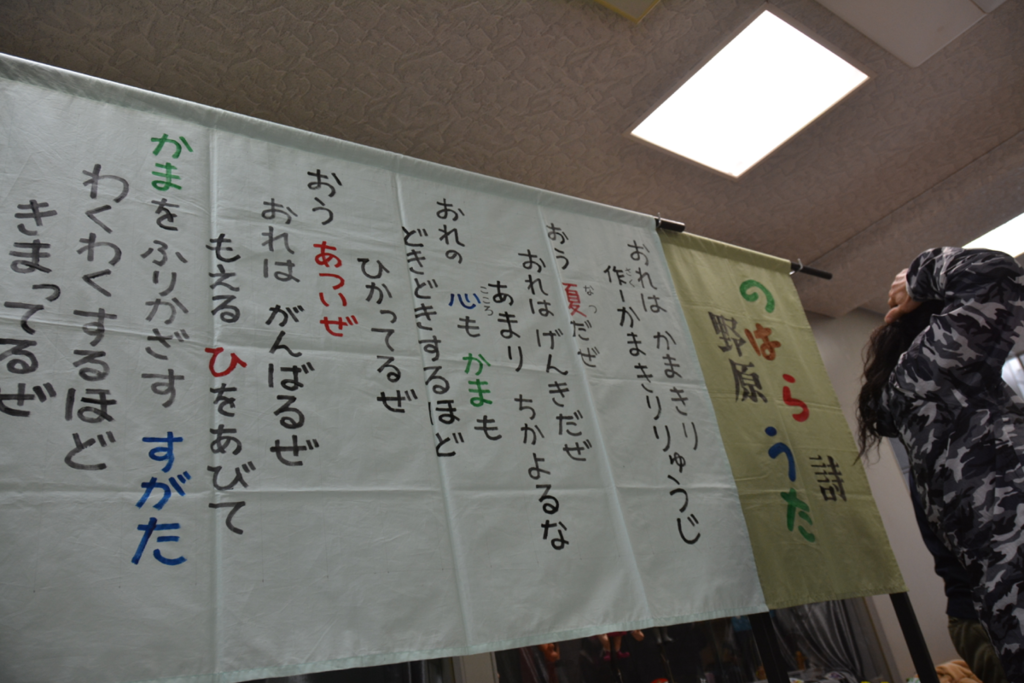 のはらうた
野原 詩
おれは かまきり
作ーかまきりりゅうじ
さく
おう 夏だぜ
なつ
おれは げんきだぜ
あまり ちかよるな
おれの 心も かまも
こころ
どきどきするほど
ひかってるぜ
おう あついぜ
おれは がんばるぜ
もえる ひをあびて
かまを ふりかざす すがた
わくわくするほど
きまってるぜ